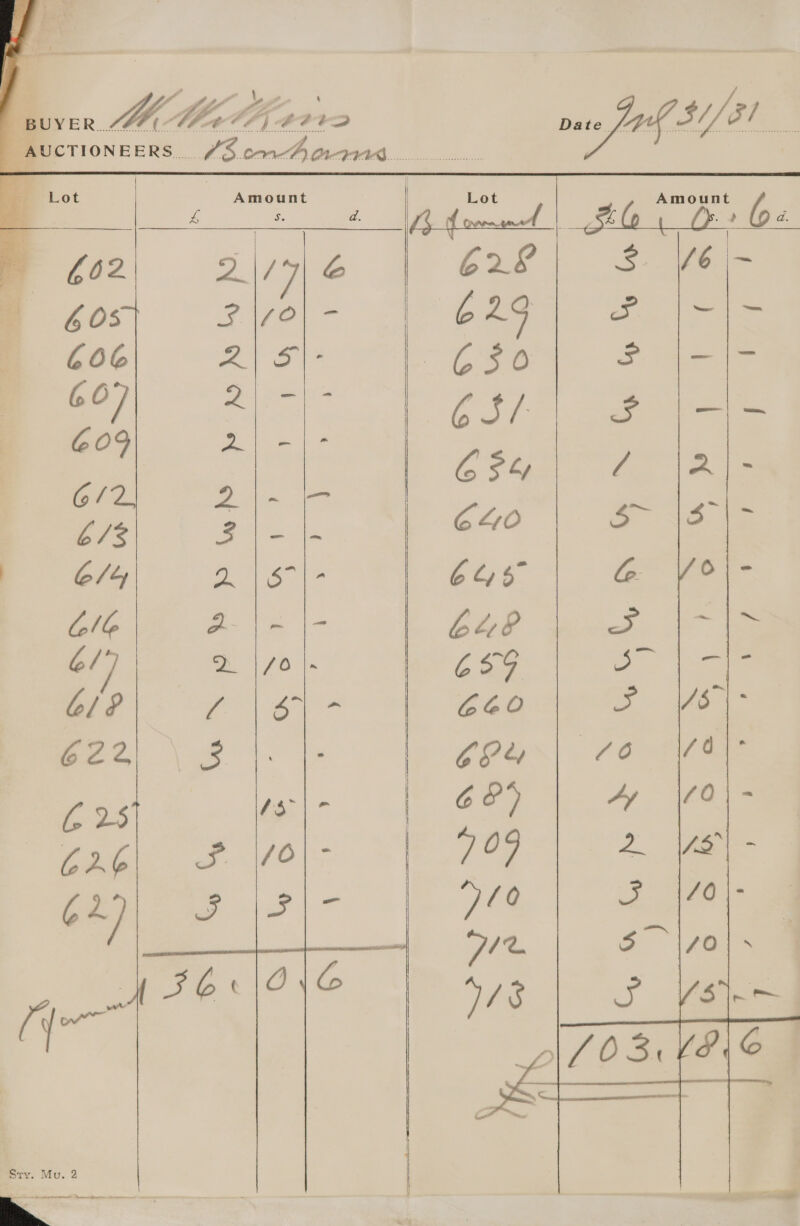 BUYER Mr Watkins Date July 31/31
AUCTIONEERS Bonhams
Lot Amount Lot Amount
£ s. d. B forward 36 0 s. 6 d.
602 2 17 6 628 3 16 -
605 3 10 - 629 3 - -
606 2 5 - 630 3 - -
607 2 - - 631 3 - -
609 2 - - 634 1 2 -
612 2 - - 640 5 5 -
613 3 - - 645 6 10 -
614 2 5 - 648 3 - -
616 2 - - 659 5 - -
617 2 10 - 660 3 15 -
618 1 5 - 684 10 10 -
622 3 - - 687 4 10 -
625 15 - 709 2 15 -
626 3 10 - 710 3 10 -
627 3 3 - 712 5 10 -
36 0 6 713 3 15 -
£ 103. 18. 6
Sty. Mu. 2